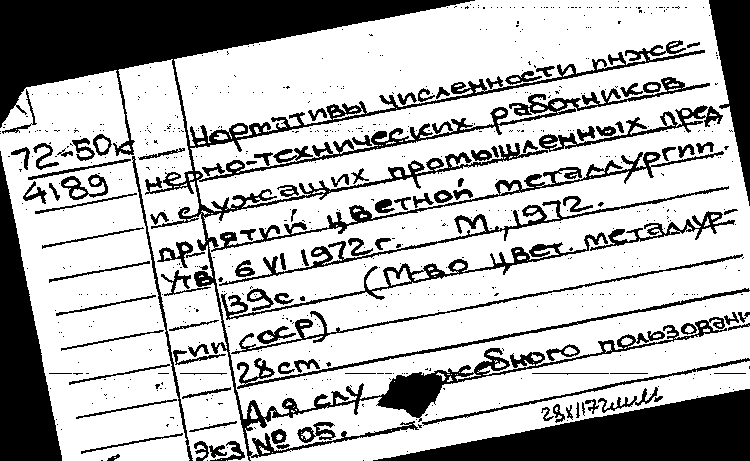 72-50к
4189
Нормативы численности инже-
нерно-технических работников
и служащих промышленных пред-
приятий цветной металлургии.
Утв. 6 VI 1972 г. М., 1972.
139 с. (М-во цвет. металлур-
гии СССР).
28 см.
Для служебного пользовани
Экз. № 05.